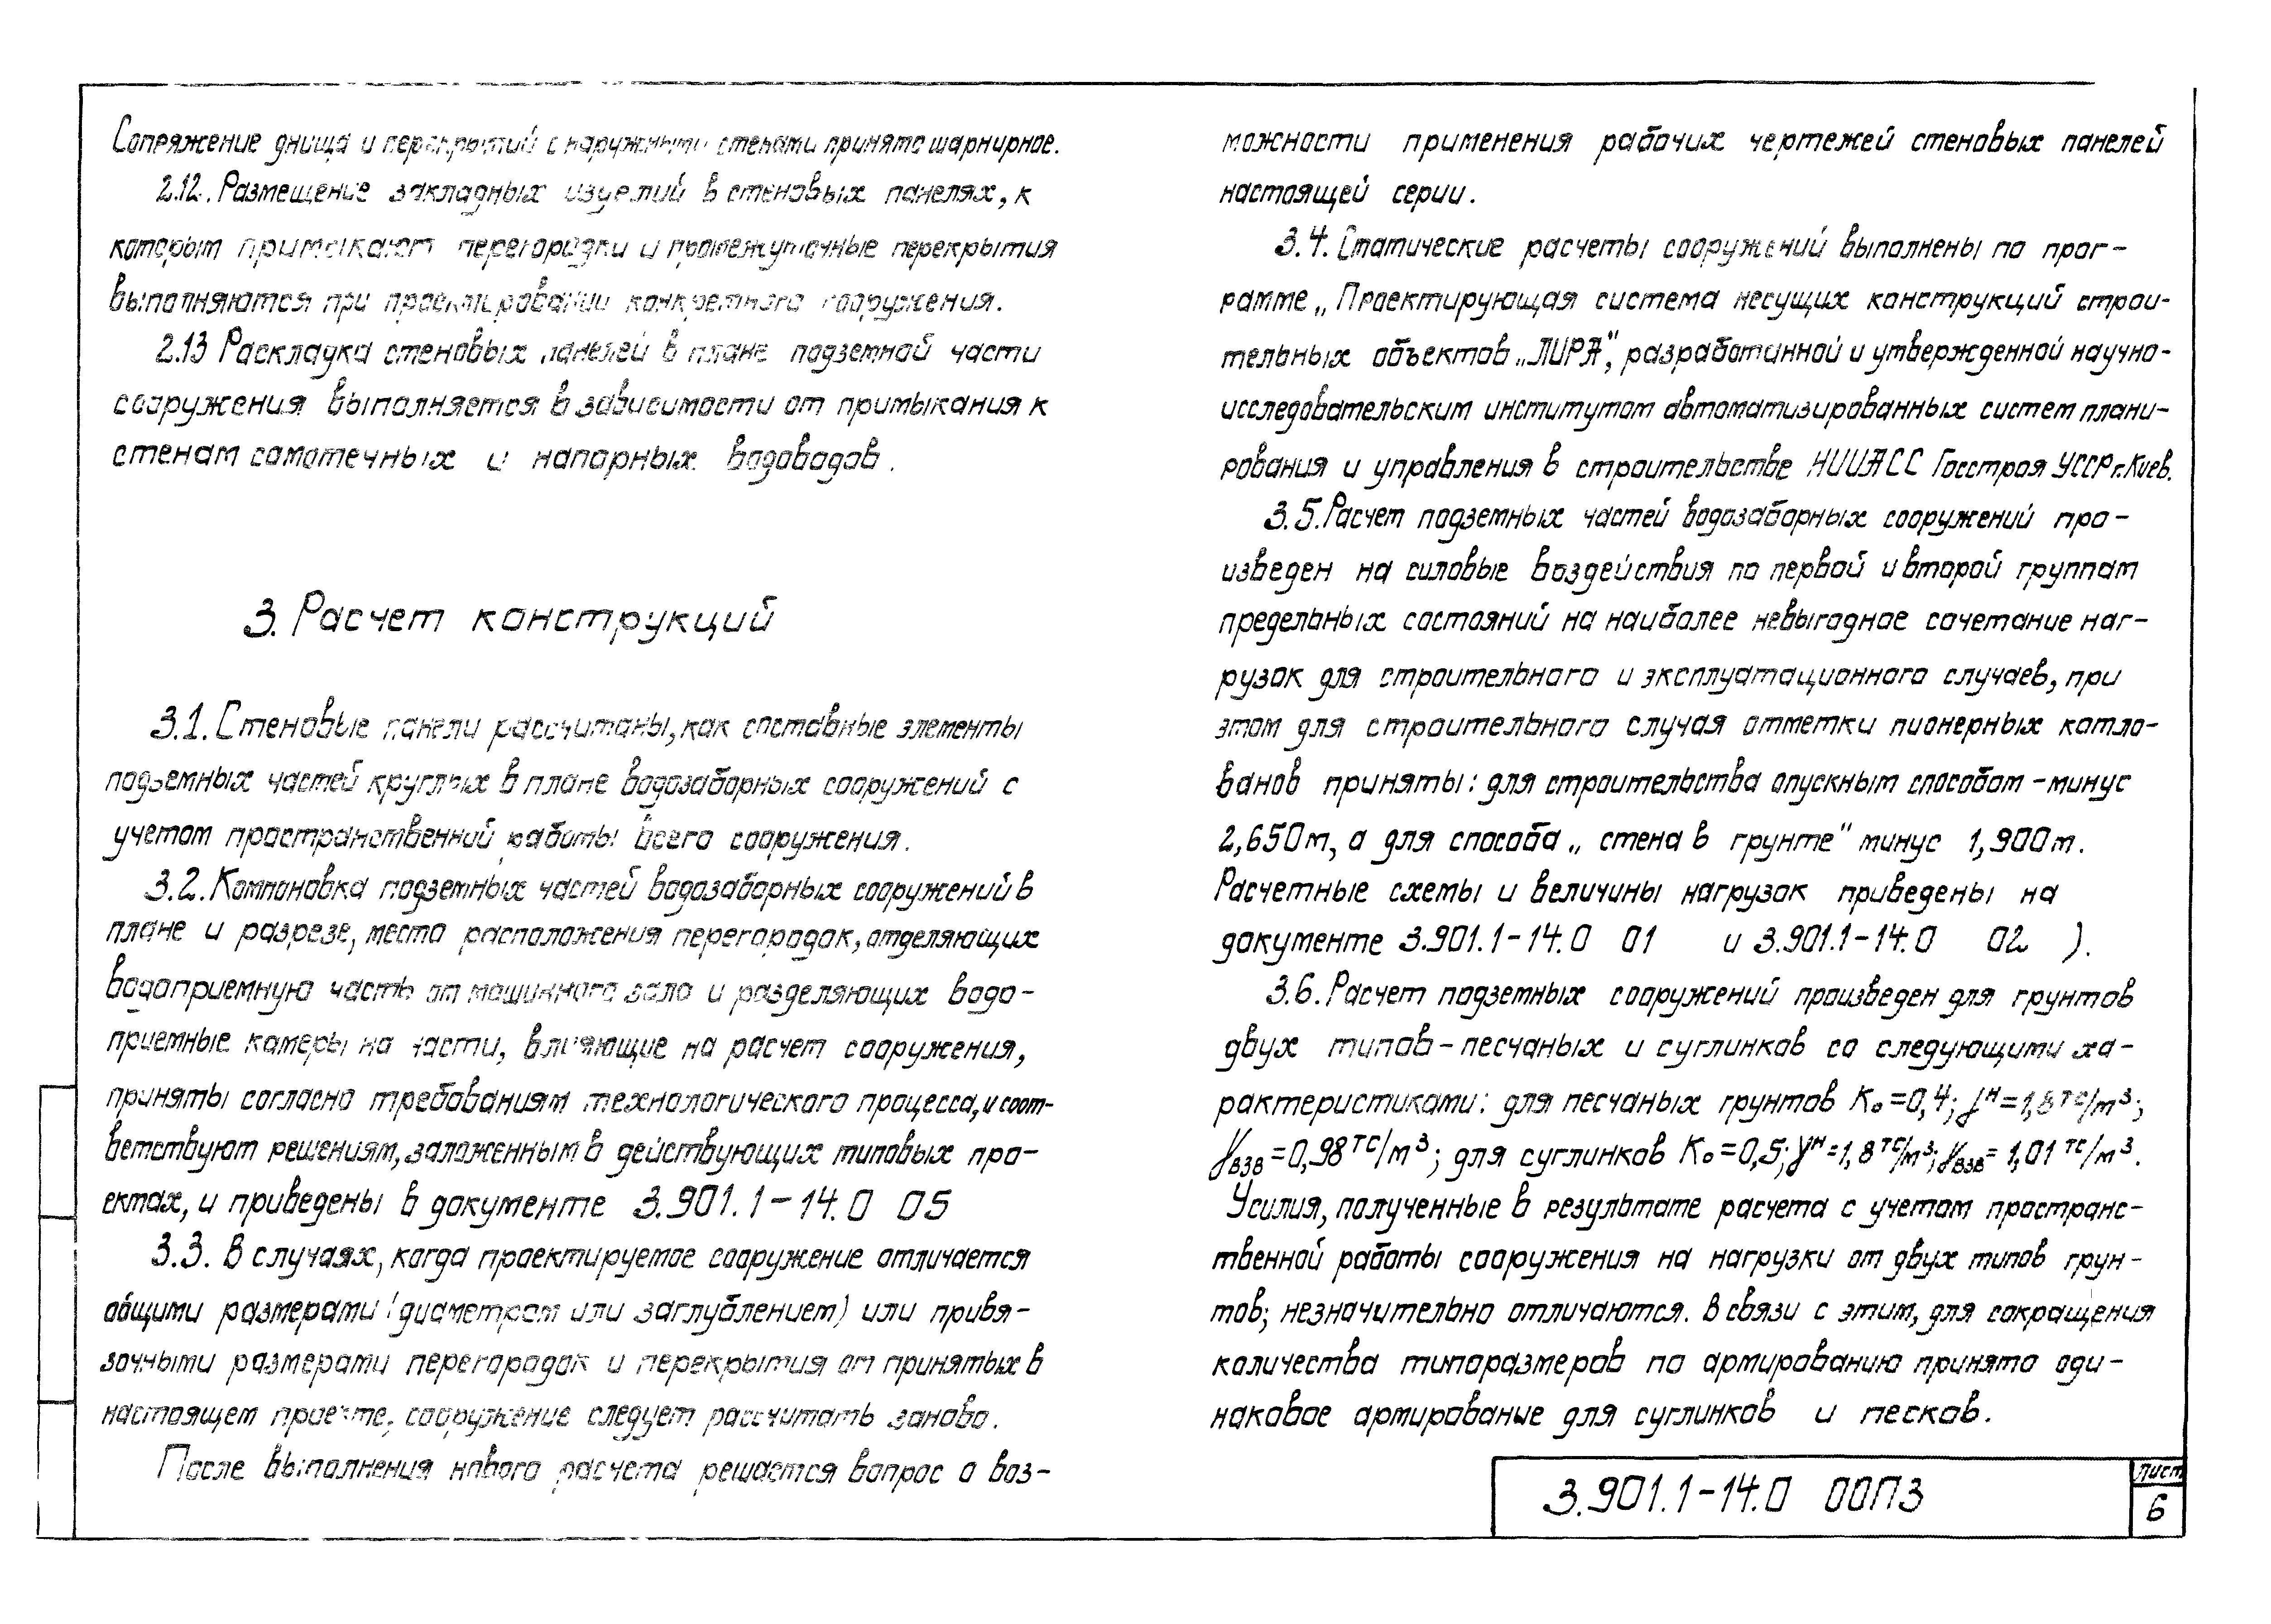 Сопряжение днища и перекрытий с наружными стенами принято шарнирное.
2.12. Размещение закладных изделий в стеновых панелях, к
которым примыкают перегородки и промежуточные перекрытия
выполняются при проектировании конкретного сооружения.
2.13 Раскладка стеновых панелей в плане подземной части
сооружения выполняется в зависимости от примыкания к
стенам самотечных и напорных водоводов.
3. Расчет конструкций
3.1. Стеновые панели рассчитаны, как составные элементы
подземных частей круглых в плане водозаборных сооружений с
учетом пространственной работы всего сооружения.
3.2. Компоновка подземных частей водозаборных сооружений в
плане и разрезе, место расположения перегородок, отделяющих
водоприемную часть от машинного зала и разделяющих водо-
приемные камеры на части, влияющие на расчет сооружения,
приняты согласно требованиям технологического процесса, и соот-
ветствуют решениям, заложенным в действующих типовых про-
ектах, и приведены в документе 3.901.1-14.0 05
3.3. В случаях, когда проектируемое сооружение отличается
общими размерами (диаметром или заглублением) или привя-
зочными размерами перегородок и перекрытия от принятых в
настоящем проекте, сооружение следует рассчитать заново.
После выполнения нового расчета решается вопрос о воз-
можности применения рабочих чертежей стеновых панелей
настоящей серии.
3.4. Статические расчеты сооружений выполнены по прог-
рамме „Проектирующая система несущих конструкций строи-
тельных объектов „ЛИРА", разработанной и утвержденной научно-
исследовательским институтом автоматизированных систем плани-
рования и управления в строительстве НИИАСС Госстроя УССР г. Киев.
3.5. Расчет подземных частей водозаборных сооружений про-
изведен на силовые воздействия по первой и второй группам
предельных состояний на наиболее невыгодное сочетание наг-
рузок для строительного и эксплуатационного случаев, при
этом для строительного случая отметки пионерных котло-
ванов приняты: для строительства опускным способом - минус
2,650м, а для способа „стена в грунте" минус 1,900м.
Расчетные схемы и величины нагрузок приведены на
документе 3.901.1-14.0 01 и 3.901.1-14.0 02 ).
3.6. Расчет подземных сооружений произведен для грунтов
двух типов - песчаных и суглинков со следующими ха-
рактеристиками: для песчаных грунтов K₀=0,4; γᴴ=1,8 тс/м³;
γвзв=0,98 тс/м³; для суглинков K₀=0,5; γᴴ=1,8 тс/м³; γвзв=1,01 тс/м³.
Усилия, полученные в результате расчета с учетом пространс-
твенной работы сооружения на нагрузки от двух типов грун-
тов; незначительно отличаются. В связи с этим, для сокращения
количества типоразмеров по армированию принято оди-
наковое армирование для суглинков и песков.
3.901.1-14.0 00ПЗ
Лист
6